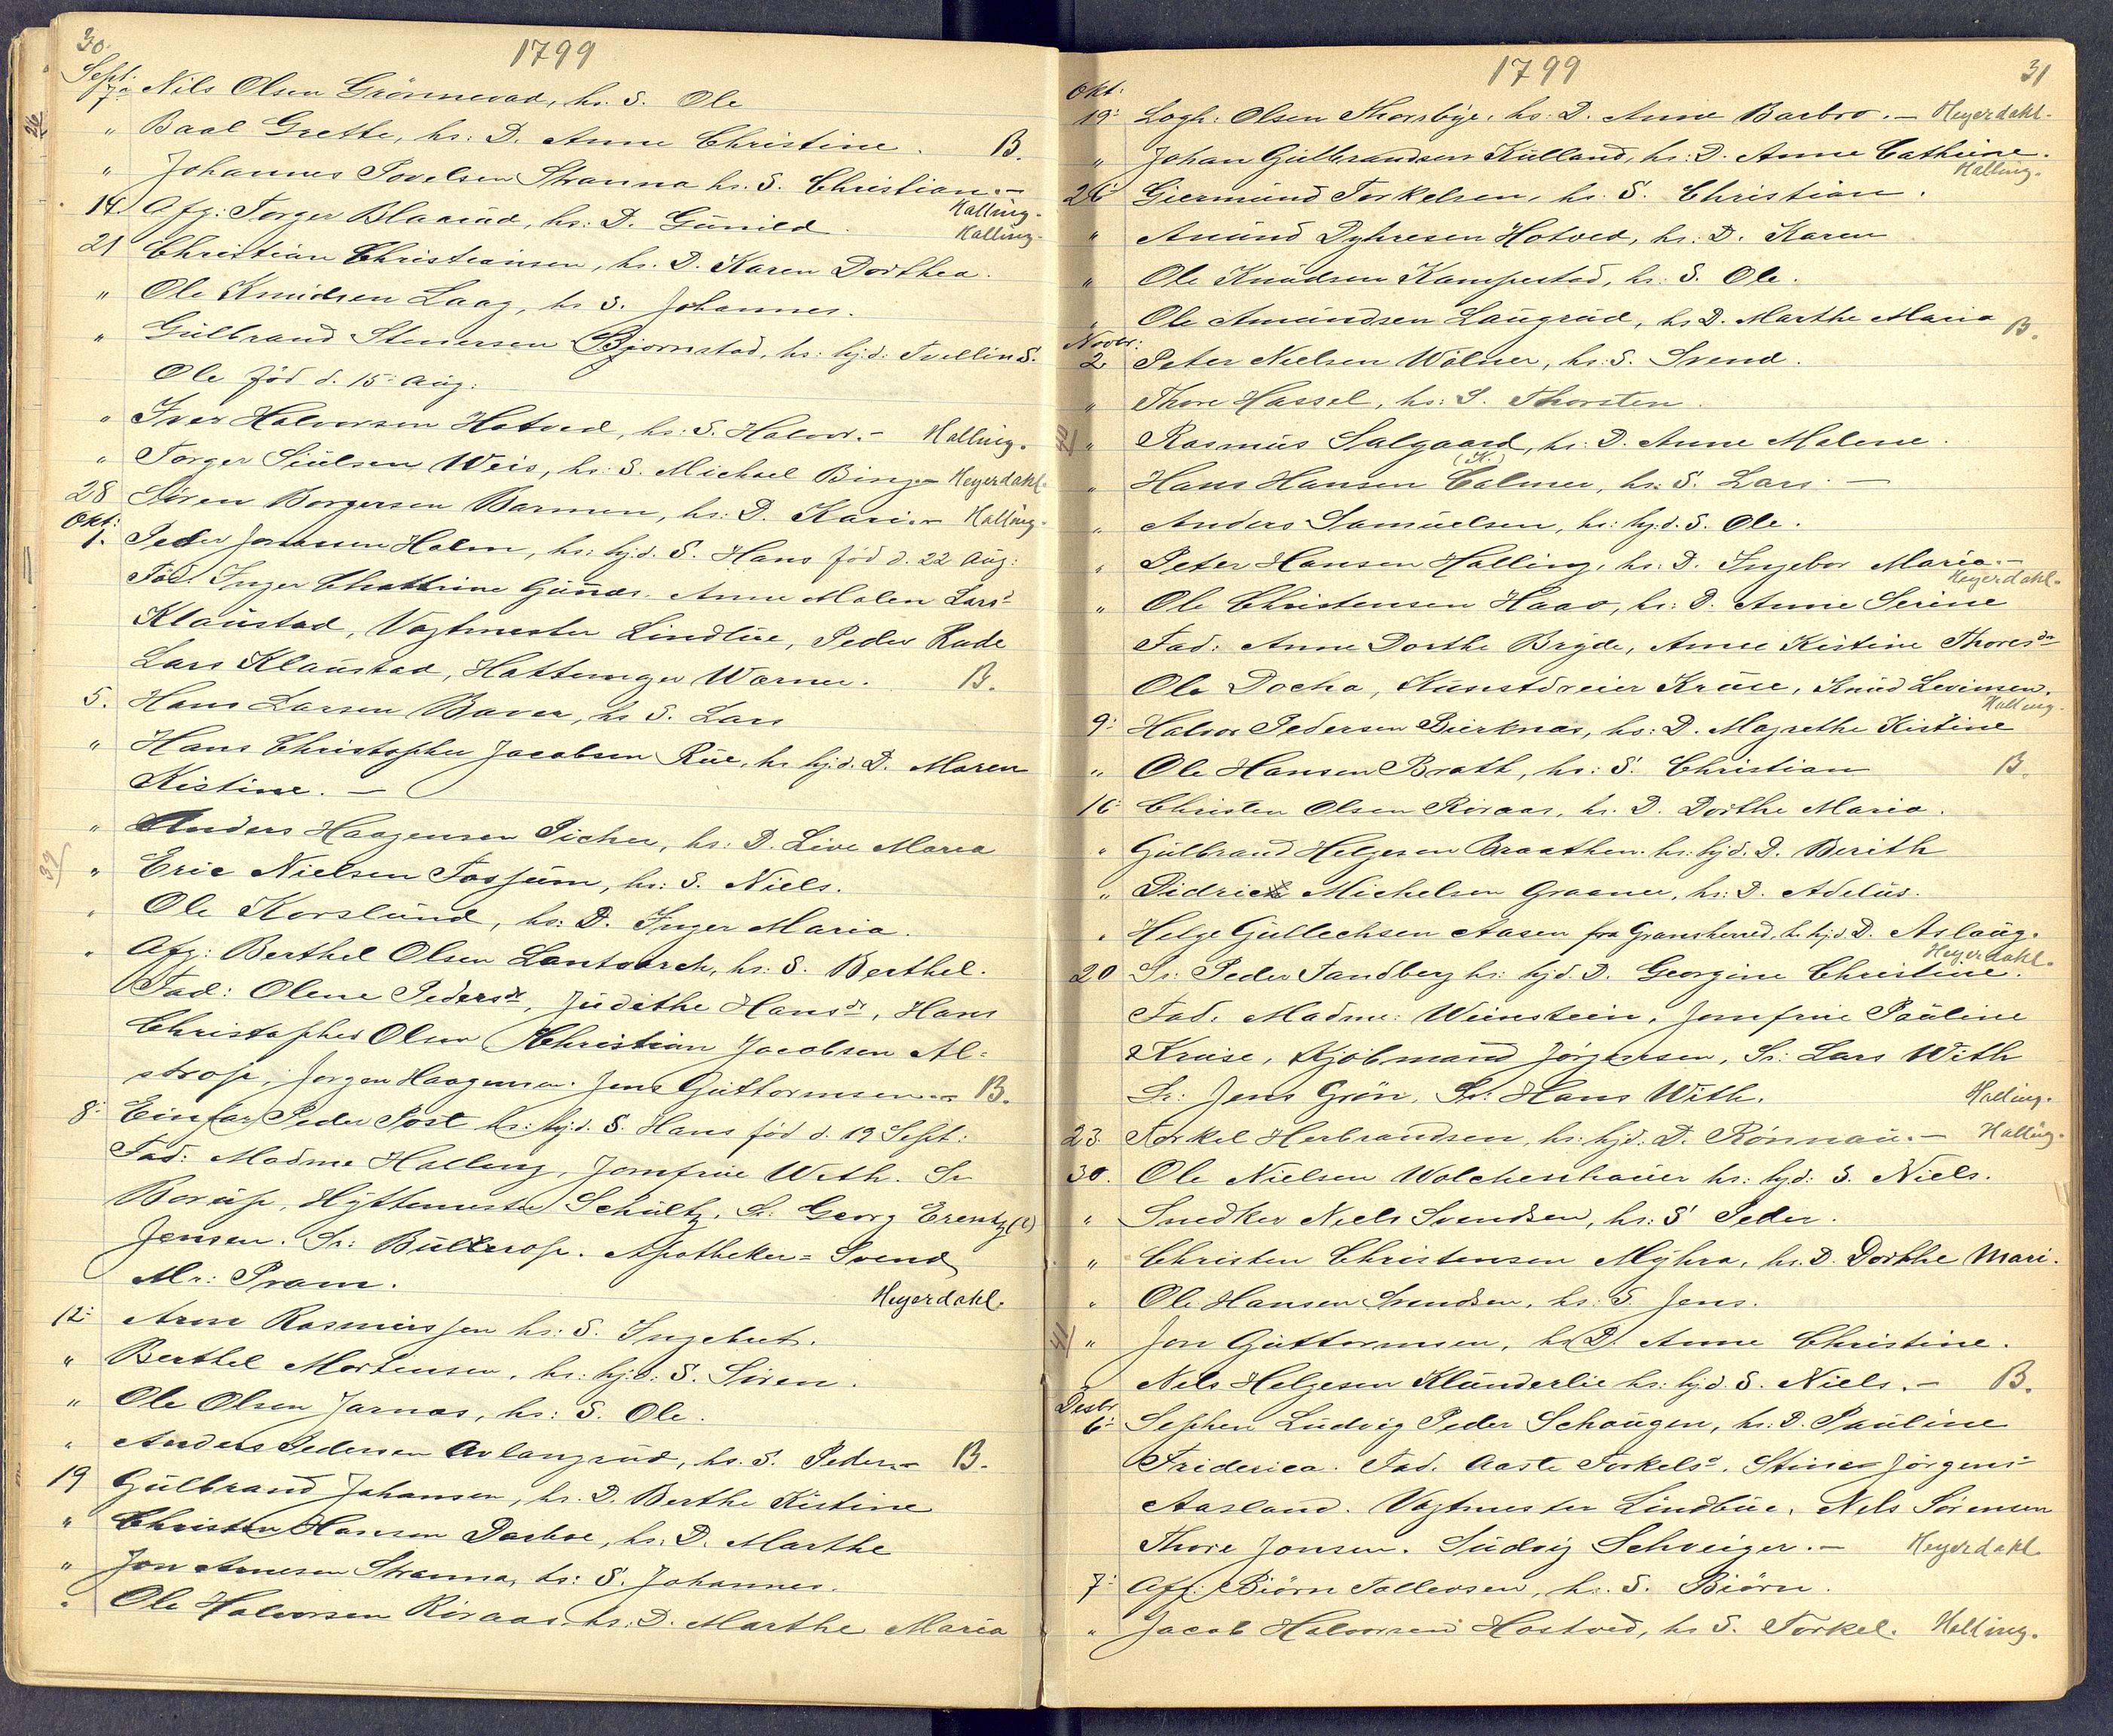 30.
1799
Sept:
7: Nils Olsen Grönnevad, hs. S. Ole
" Baal Grette, hs: D. Anne Christine. B.
" Johannes Povelsen Stranna hs. S. Christian.- Halling.
14. Afg: Torger Blaarud, hs: D. Gunild. Halling.
21 Christian Christiansen, hs. D. Karen Dorthea.
" Ole Knudsen Laag, hs S. Johannes.
" Gulbrand Stenersen Bjørnstad, hs: hj:d: Tvilling S.
Ole född d. 15: Aug:
" Iver Halvorsen Hotved, hs: S. Halvor.- Halling.
" Torger Siulsen Weis, hs: S. Michael Bing.- Heyerdahl.
28 Sören Borgersen Barmen, hs: D. Kari.- Halling.
Okt:
1. Peder Jonassen Holm, hs: hj:d. S. Hans föd d. 22 Aug:
Fad. Inger Chathrine Gunnes. Anne Malen Lars:
Klaustad, Vagtmester Lindbue, Peder Rude
Lars Klaustad, Hattemager Warner. B.
5. Hans Larsen Baver, hs S. Lars
" Hans Christopher Jacobsen Rue, hs hj:d. D. Maren
Kistine. -
" Anders Haagensen Picher, hs: D. Live Maria
39
" Eric Nielsen Fossum, hs: S. Niels.
" Ole Korslund, hs: D. Inger Maria.
" Afg: Berthel Olsen Lantvarch, hs: S. Berthel.
Fad: Olene Peders dr, Judithe Hans dr, Hans
Christopher Olsen Christian Jacobsen Al=
strop, Jørgen Haagensen. Jens Guttormsen.- B.
8: Einfar Peder Post hs: hj:d. S. Hans föd d. 19 Sept:
Fad: Madme Halling, Jomfrue With. Sr
Borup, Hyttemester Schultz, Sr: Georg Erentz(?)
Jensen. Sr: Bulterop. Apotheker= Svend
Mr: Pram. Heyerdahl.
12: Arne Rasmussen hs: S. Ingebret.
" Berthel Mortensen, hs: hj:d: S. Sören.
" Ole Olsen Jarnæs, hs: S. Ole.
" Anders Pedersen Avlangrud, hs. S. Peder.- B.
19 Gulbrand Johansen, hs. D. Berthe Kistine
" Christen Hansen Dorboe, hs. D. Marthe
" Jon Arnesen Stranna, hs: S. Johannes.
" Ole Halvorsen Röraas, hs: D. Marthe Maria
1799
31
Okt:
19: Logh: Olsen Thorsbye, hs: D. Anne Barbro.- Heyerdahl.
" Johan Gulbrandsen Kulland, hs: D. Anne Cathrine. Halling.
26: Giermund Torkelsen, hs. S. Christian.
" Anund Dyhresen Hotved, hs: D. Karen
" Ole Knudsen Kampestad, hs: S. Ole.
Ole Amundsen Laugrud, hs D. Marthe Maria B.
Novbr:
2 Peter Nielsen Wölner, hs: S. Svend.
" Thore Hassel, hs: S. Thorsten.
40
" Rasmus Salgaard, hs: D. Anne Malene.
(K.)
" Hans Hansen Calmer, hs: S. Lars. -
" Anders Samuelsen, hs: hj:d. S. Ole.
" Peter Hansen Halling, hs: D. Ingebor Maria.- Heyerdahl.
" Ole Christensen Haav, hs: D. Anne Serine
Fad: Anne Dorthe Bryde, Anne Kistine Thores dr
Ole Docha, Kunstdreier Kruse, Knud Levinsen. Halling.
9: Halvor Pedersen Bierknæs, hs: D. Magrethe Kistine
" Ole Hansen Brath, hs: S. Christian B.
16: Christen Olsen Röraas, hs. D. Dorthe Maria.
" Gulbrand Helgesen Braathen. hs: hj:d. D. Berith
" Didrich Michelsen Graanu, hs: D. Adelus.
" Helge Gullechsen Aasen fra Gransherred, hs hj:d D. Aslaug. Heyerdahl.
20 Sr: Peder Sandberg hs: hj:d. D. Georgine Christine.
Fad: Madme: Weinstein, Jomfrue Pauline
Kruse, Kjöbmand Jörgensen, Sr: Lars With
Sr: Jens Grön, Sr: Hans With. Halling.
23. Torkel Herbrandsen, hs: hj:d: D. Rönnau.- Halling.
30. Ole Nielsen Wolchenhauer hs: hj:d: S. Niels.
" Snedker Niels Svendsen, hs: S. Peder.
" Christen Christensen Myhra, hs. D. Dorthe Mari.
" Ole Hansen Svendsen, hs: S. Jens.
41
" Jon Guttormsen, hs D. Anne Christine.
Nels Helgesen Klunderlie hs: hj:d. S. Niels.- B.
Desbr
6: Sephen Ludvig Peder Schougen, hs: D. Pauline
Friderica. Fad. Aaste Torkels:. Stine Jörgens:
Aasland. Vagtmester Lindbue, Nels Sörensen
Thore Jonsen. Ludvig Schveiger.- Heyerdahl
7: Afg: Biörn Tallevsen, hs. S. Biörn.
" Jacob Halvorsen Hostved, hs S. Torkel. Halling.